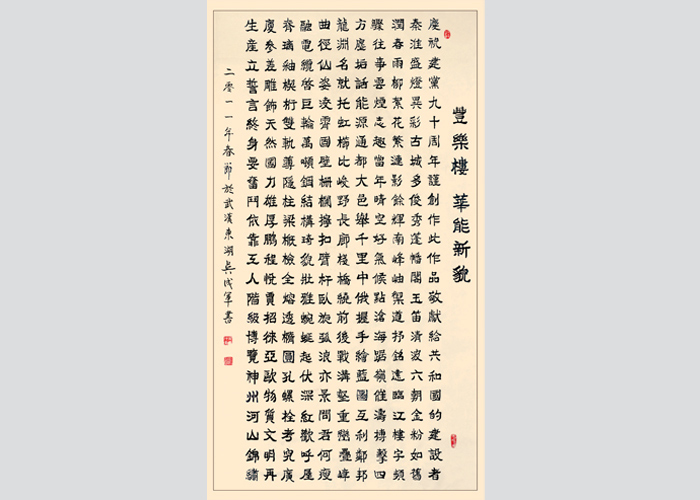 豐樂樓 華能新貌
慶祝建黨九十周年謹創作此作品敬獻給共和國的建設者
秦淮盛燈異彩古城多俊秀蓬幡閣玉笛清波六朝金粉如舊
潤春雨柳絮花繁連影餘輝南峰岫禦道抒銘遠臨江樓字頻
驟往事雲煙志趣當年晴空好氣候點滄海踞嶺催濤搏擊四
方塵垢話能源通都大邑舉千里中俄握手繪藍圖互利鄰邦
龍淵名就托虹櫛比峻野長廊棧橋繞前後戰溝壑重巒疊嶂
曲徑仙姿凌霄固壁柵欄擰扣臂杆臥旋弧浪亦景問君何瘦
融電纜啓巨輪萬噸鋼結構琦貌批雅蜿蜒起伏深紅歡呼屋
脊璃紬楔桁雙軌隱柱梁檢全熔透橢圓孔螺栓考究廣
廈參差雕飾天然國力雄厚鵬程悅賈招徠亞歐物質文明再
生産立誓言終身要奮鬥依靠工人階級博覽神州河山錦繡
二零一一年春節於武漢東湖吳成軍書